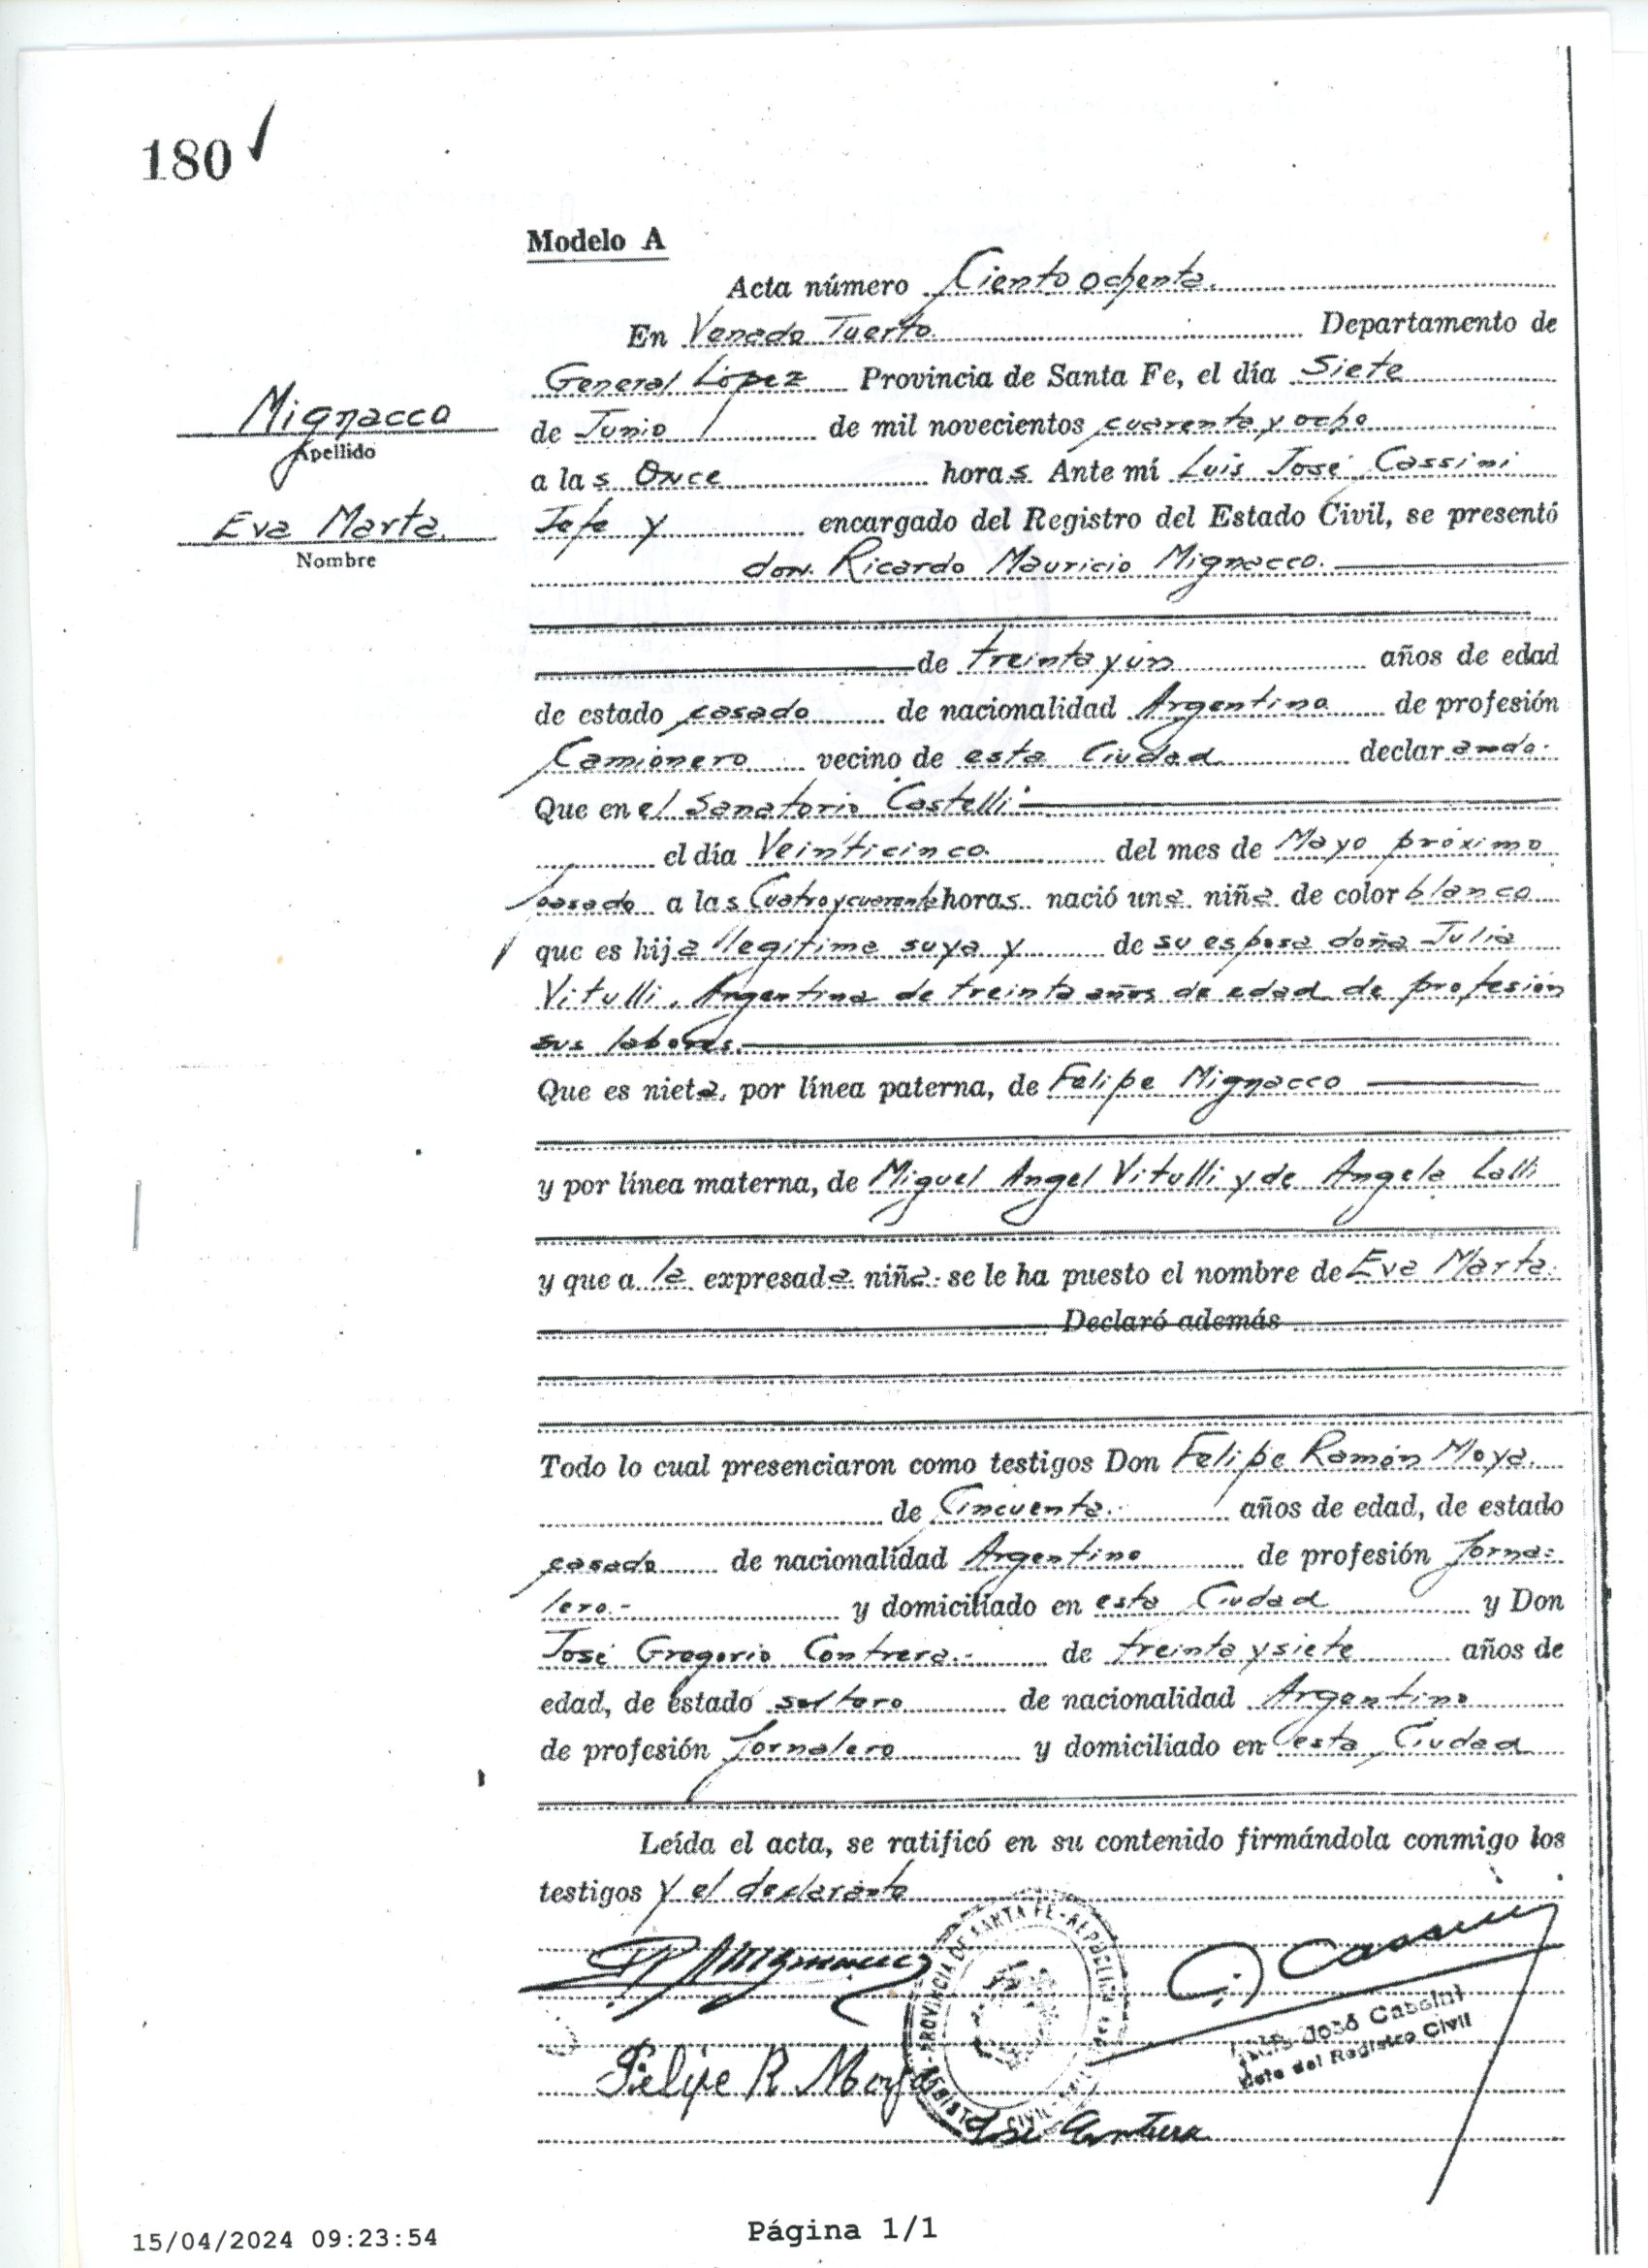 180
Modelo A
Acta número Ciento ochenta.
En Venado Tuerto Departamento de
General López Provincia de Santa Fe, el día Siete
Mignacco
Apellido
de Junio de mil novecientos cuarenta y ocho
a las Once horas. Ante mí Luis José Cassini
Eva Marta.
Nombre
Jefe y encargado del Registro del Estado Civil, se presentó
don. Ricardo Mauricio Mignacco.
de treinta y un años de edad
de estado casado de nacionalidad Argentino de profesión
Camionero vecino de esta Ciudad declarando:
Que en el Sanatorio Castelli
el día Veinticinco del mes de Mayo próximo
pasado a las Cuatro y cuarenta horas nació una niña de color blanco
que es hija legítima suya y de su esposa doña Julia
Vitulli, Argentina de treinta años de edad de profesión
sus labores.
Que es nieta, por línea paterna, de Felipe Mignacco
y por línea materna, de Miguel Angel Vitulli y de Angela Lalli
y que a la expresada niña se le ha puesto el nombre de Eva Marta.
Declaró además
Todo lo cual presenciaron como testigos Don Felipe Ramón Moya.
de Cincuenta. años de edad, de estado
casado de nacionalidad Argentino de profesión Jorna-
lero.- y domiciliado en esta Ciudad y Don
José Gregorio Contrera.- de treinta y siete años de
edad, de estado soltero de nacionalidad Argentino
de profesión Jornalero y domiciliado en esta Ciudad
Leída el acta, se ratificó en su contenido firmándola conmigo los
testigos y el declarante
PROVINCIA DE SANTA FE - REPUBLICA
REGISTRO CIVIL
Luis José Cassini
Jefe del Registro Civil
Felipe R Moya
José Contrera
15/04/2024 09:23:54 Página 1/1